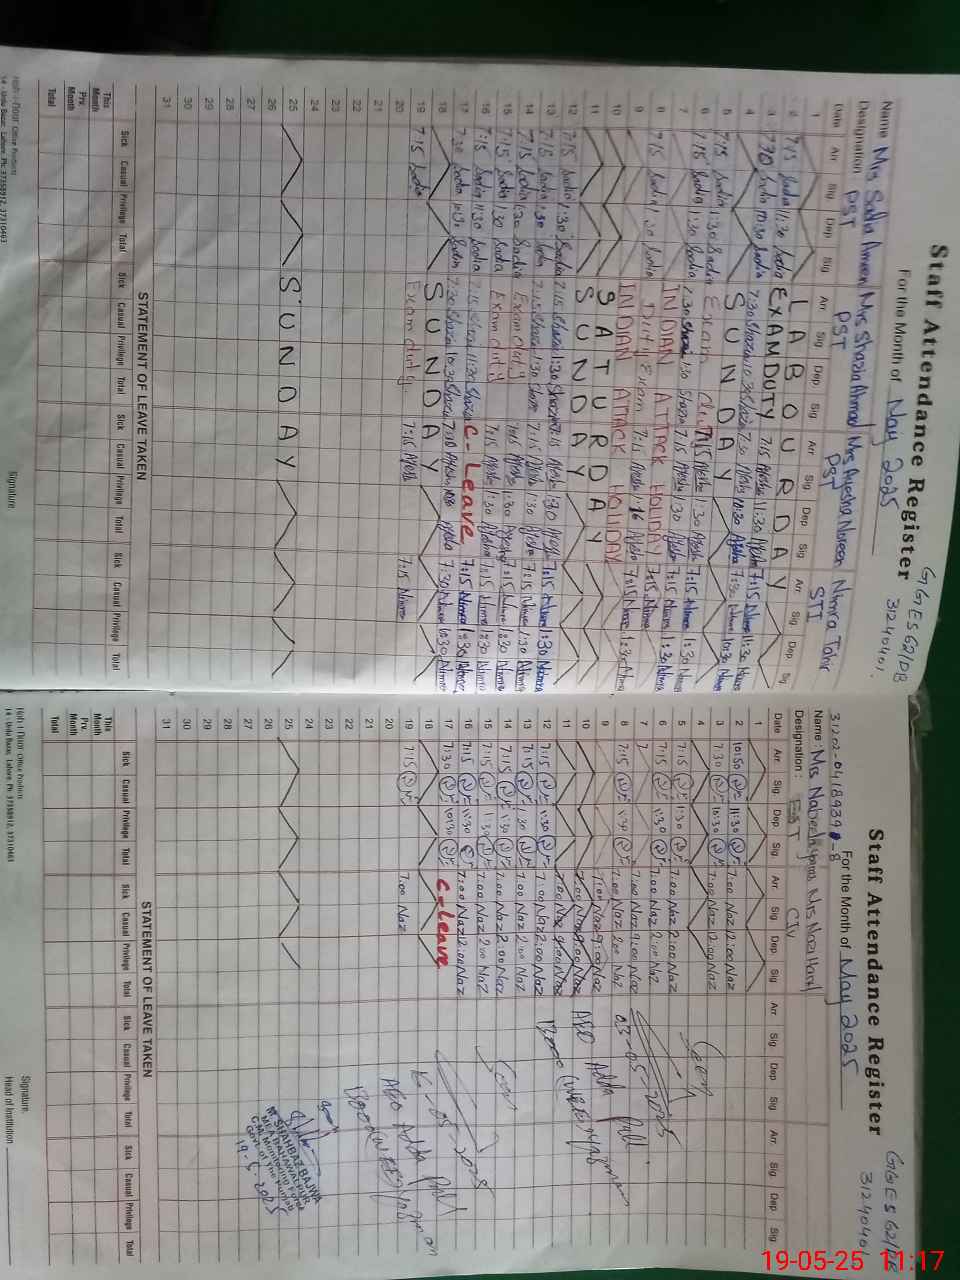 Staff Attendance Register
For the Month of May 2025
GGES 62/DB
31240401
Name Mrs Sadia Ameen Mrs Shazia Ahmad Mrs Ayesha Noreen Nimra Tahir
Designation PST PST PST STI
Date Arr Sig Dep Sig Arr Sig Dep Sig Arr Sig Dep Sig Arr Sig Dep Sig
1 LABOUR DAY
2 7:15 Sadia 11:30 Sadia EXAM DUTY 7:15 Ayesha 11:30 Ayesha 7:15 Nimra 11:30 Nimra
3 7:30 Sadia 10:30 Sadia 7:30 Shazia 10:30 Shazia 7:30 Ayesha 10:30 Ayesha 7:30 Nimra 10:30 Nimra
4 SUNDAY
5 7:15 Sadia 1:30 Sadia Exam Duty 7:15 Ayesha 1:30 Ayesha 7:15 Nimra 1:30 Nimra
6 7:15 Sadia 1:30 Sadia 7:30 Shazia 1:30 Shazia 7:15 Ayesha 1:30 Ayesha 7:15 Nimra 1:30 Nimra
7 INDIAN ATTACK HOLIDAY
8 7:15 Sadia 1:30 Sadia Duty Exam 7:15 Ayesha 7:15 Nimra 1:30 Nimra
9 INDIAN ATTACK HOLIDAY
10 SATURDAY
11 SUNDAY
12 7:15 Sadia 1:30 Sadia 7:15 Shazia 1:30 Shazia 7:15 Ayesha 1:30 Ayesha 7:15 Nimra 1:30 Nimra
13 7:15 Sadia 1:30 Sadia 7:15 Shazia 1:30 Shazia 7:15 Ayesha 1:30 Ayesha 7:15 Nimra 1:30 Nimra
14 7:15 Sadia 1:30 Sadia Exam duty 7:15 Ayesha 1:30 Ayesha 7:15 Nimra 1:30 Nimra
15 7:15 Sadia 1:30 Sadia Exam duty 7:15 Ayesha 1:30 Ayesha 7:15 Nimra 1:30 Nimra
16 7:15 Sadia 11:30 Sadia 7:15 Shazia 11:30 Shazia C-Leave 7:15 Nimra 11:30 Nimra
17 7:30 Sadia 10:30 Sadia 7:30 Shazia 10:30 Shazia 7:30 Ayesha Ayesha 7:30 Nimra 10:30 Nimra
18 SUNDAY
19 7:15 Sadia Exam duty 7:15 Ayesha 7:15 Nimra
20
21
22
23
24
25 SUNDAY
26
27
28
29
30
31
STATEMENT OF LEAVE TAKEN
Sick Casual Privilege Total Sick Casual Privilege Total Sick Casual Privilege Total Sick Casual Privilege Total
This Month
Prv. Month
Total
Signature
14 - Urdu Bazar, Lahore. Ph: 37358912, 37310463
Staff Attendance Register
For the Month of May 2025
31240401
Name: Mrs Nabeela Mrs Naz
Designation: EST CIV
Date Arr Sig Dep Sig Arr Sig Dep Sig Arr Sig Dep Sig Arr Sig Dep Sig
1
2 10:50 11:30 7:00 Naz 12:00 Naz
3 7:30 10:30 7:00 Naz 12:00 Naz
4
5 7:15 1:30 7:00 Naz 2:00 Naz
6 7:15 1:30 7:00 Naz 2:00 Naz
7 7:00 Naz 9:00 Naz
8 7:15 1:30 7:00 Naz 2:00 Naz
9 7:00 Naz 9:00 Naz
10 7:00 Naz 9:00 Naz
11 7:00 Naz 9:00 Naz
12 7:15 1:30 7:00 Naz 2:00 Naz
13 7:15 1:30 7:00 Naz 2:00 Naz
14 7:15 1:30 7:00 Naz 2:00 Naz
15 7:15 1:30 7:00 Naz 2:00 Naz
16 7:15 11:30 7:00 Naz 12:00 Naz
17 7:30 10:30 C-Leave
18
19 7:15 7:00 Naz
20
21
22
23
24
25
26
27
28
29
30
31
03-05-2025
AEO Adda
AEO Adda
SHAHBAZ BAJWA
MEA BAHAWALPUR
C.M. Monitoring Force
Govt. of The Punjab
19-5-2025
STATEMENT OF LEAVE TAKEN
Sick Casual Privilege Total Sick Casual Privilege Total Sick Casual Privilege Total Sick Casual Privilege Total
This Month
Prv. Month
Total
Signature
Head of Institution
14 - Urdu Bazar, Lahore. Ph: 37358912, 37310463
19-05-25 11:17